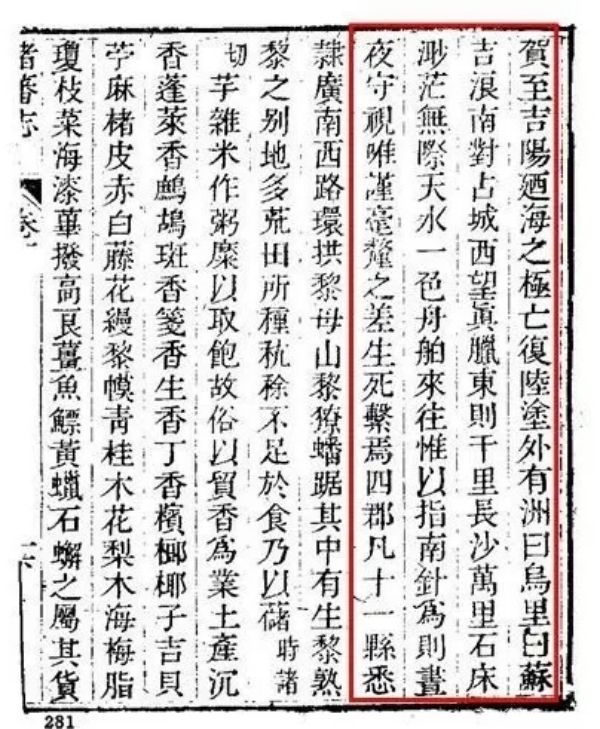 賀至吉陽廼海之極亡復陸塗外有洲曰烏里曰蘇
吉浪南對占城西望眞臘東則千里長沙萬里石床
渺茫無際天水一色舟舶來往惟以指南針爲則晝
夜守視唯謹毫釐之差生死繫焉四郡凡十一縣悉
隸廣南西路環拱黎母山黎獠蟠踞其中有生黎熟
黎之别地多荒田所種秔稌不足於食乃以藷時諸
切芋雜米作粥糜以取飽故俗以貿香爲業土產沉
香蓬萊香鷓鴣斑香箋香生香丁香檳榔椰子吉貝
苧麻楮皮赤白藤花縵黎幙青桂木花梨木海梅脂
瓊枝菜海漆蓽撥高良薑魚鰾黃蠟石蠏之屬其貨
諸蕃志
281